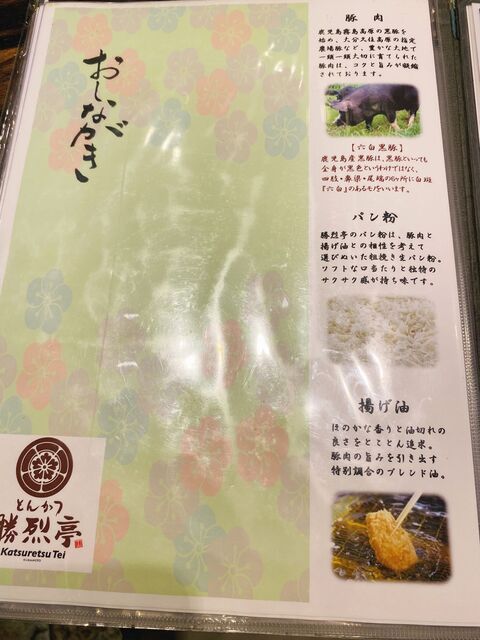 おしながき
豚肉
鹿児島霧島高原の黒豚を
始め、大分久住高原の指定
農場豚など、豊かな大地で
一頭一頭大切に育てられた
豚肉は、コクと旨みが凝縮
されております。
【六白黒豚】
鹿児島産黒豚は、黒豚といっても
全身が黒色というわけではなく、
四肢・鼻梁・尾端の6ヶ所に白斑
『六白』のあるモノをいいます。
パン粉
勝烈亭のパン粉は、豚肉と
揚げ油との相性を考えて
選びぬいた粗挽き生パン粉。
ソフトな口当たりと独特の
サクサク感が持ち味です。
揚げ油
ほのかな香りと油切れの
良さをとことん追求。
豚肉の旨みを引き出す
特別調合のブレンド油。
とんかつ
勝烈亭
Katsuretsu Tei